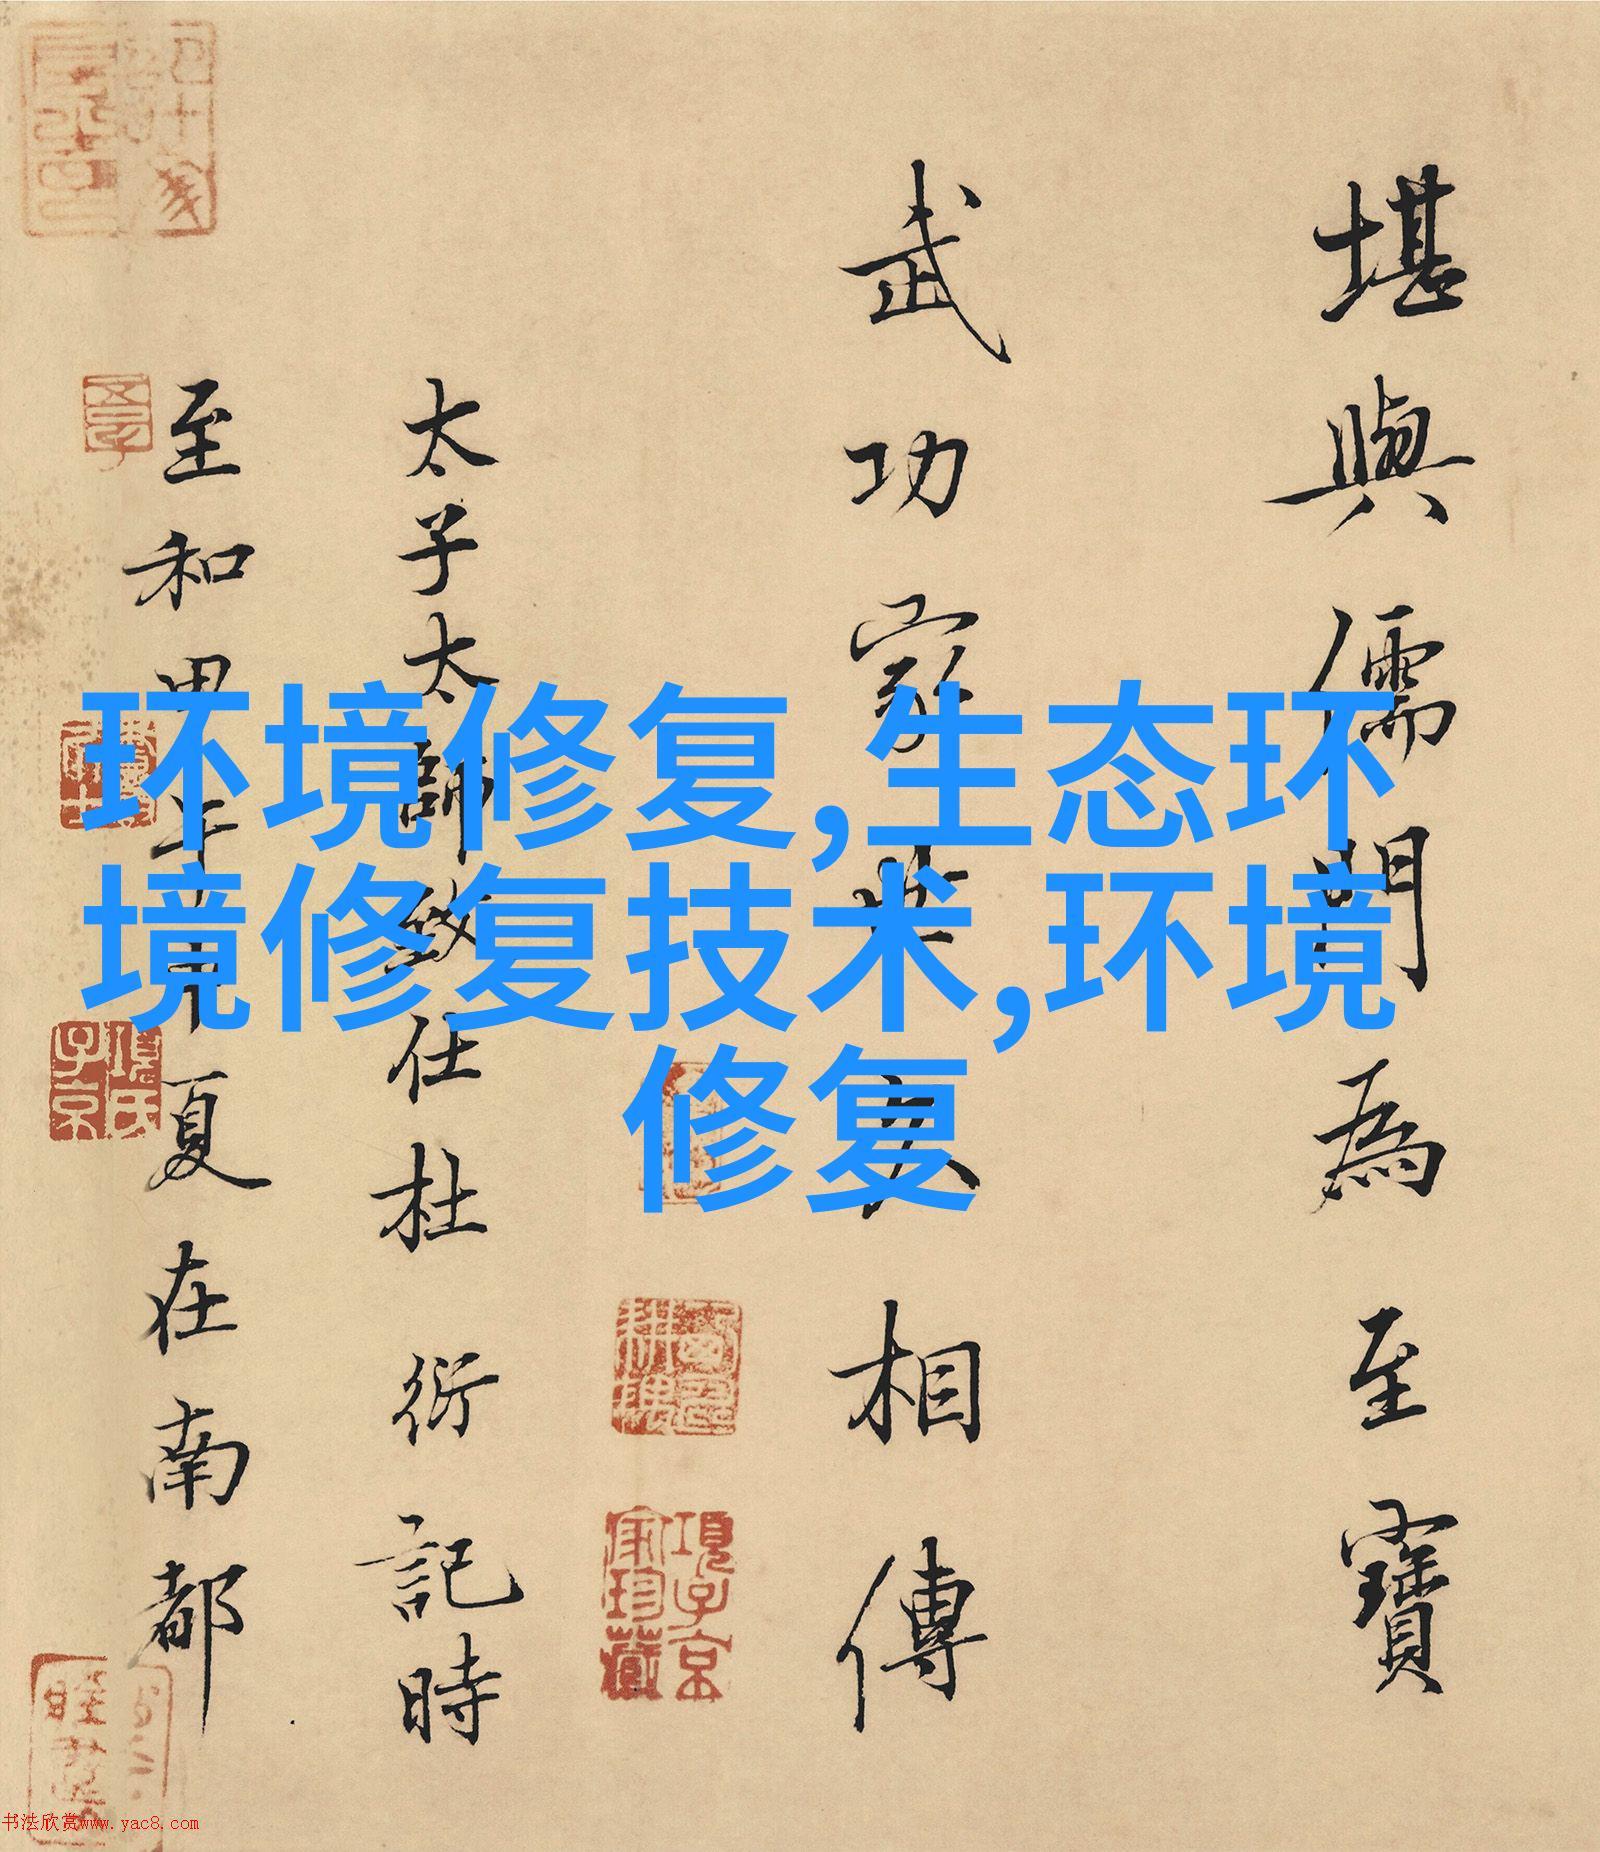 环境修复,生态环
境修复技术,环境
修复
堪輿儒門為至寶
武功家世久相傳
太子太師致仕杜衍記時
至和甲午季夏在南都
項子京家珍藏
項氏子京
书法欣赏www.yac8.com